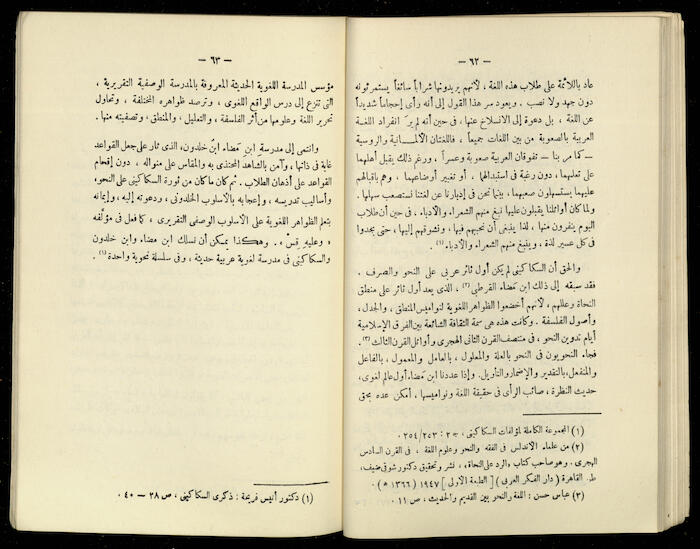 — ٦٢ —
عاد باللائمة على طلاب هذه اللغة ، لأنهم يريدونها شراباً سائغاً يستمرئونه
دون جهد ولا نصب . ويعود سر هذا القول إلى أنه رأى إحجاماً شديداً
عن اللغة ، بل دعوة إلى الانسلاخ عنها ، فى حين أنه لم ير انفراد اللغة
العربية بالصعوبة من بين اللغات جميعاً ، فاللغتان الألمانية والروسية
— كما مر بنا — تفوقان العربية صعوبة وعسراً ، ورغم ذلك يقبل أهلهما
على تعلمهما ، دون رغبة فى استبدالها ، أو تغيير أوضاعهما ، وهم باقبالهم
عليهما يستسهلون صعبهما ، بينما نحن فى إدبارنا عن لغتنا نستصعب سهلها .
ولما كان أوائلنا يقبلون عليها نبغ منهم الشعراء والأدباء ، فى حين أن طلاب
اليوم ينفرون منها ، لذا ينبغى أن نحببهم فيها ، ونشوقهم إليها ، حتى يجدوا
فى كل عسير لذة ، وينبغ منهم الشعراء والأدباء (١) .
والحق أن السكاكينى لم يكن أول ثائر عربى على النحو والصرف .
فقد سبقه إلى ذلك ابن مضاء القرطبى (٢) ، الذى يعد أول ثائر على منطق
النحاة وعللهم ، لأنهم أخضعوا الظواهر اللغوية لنواميس المنطق ، والجدل ،
وأصول الفلسفة . وكانت هذه هى سمة الثقافة الشائعة بين الفرق الإسلامية
أيام تدوين النحو ، فى منتصف القرن الثانى الهجرى وأوائل القرن الثالث (٣) .
فجاء النحويون فى النحو بالعلة والمعلول ، بالعامل والمعمول ، بالفاعل
والمنفعل ، بالتقدير والإضمار والتأويل . وإذا عددنا ابن مضاء أول عالم لغوى ،
حديث النظرة ، صائب الرأى فى حقيقة اللغة ونواميسها ، أمكن عده بحق
(١) المجموعة الكاملة لمؤلفات السكاكينى ، ج ٢ : ٢٧٣/٢٥٤ .
(٢) من علماء الأندلس فى الفقه والنحو وعلوم اللغة ، فى القرن السادس
الهجرى . وهو صاحب كتاب «الرد على النحاة» ، نشر وتحقيق دكتور شوقى ضيف ،
ط. القاهرة ( دار الفكر العربى ) [ الطبعة الأولى ] ١٩٤٧ ( ١٣٦٦ هـ ) .
(٣) عباس حسن : اللغة والنحو بين القديم والحديث ، ص ١١ .
— ٦٣ —
مؤسس المدرسة اللغوية الحديثة المعروفة بالمدرسة الوصفية التقريرية ،
التى تنزع إلى درس الواقع اللغوى ، وترصد ظواهره المختلفة ، وتحاول
تحرير اللغة وعلومها من أثر الفلسفة ، والتعليل ، والمنطق ، وتصفيته منها .
وانتمى إلى مدرسة ابن مضاء ابن خلدون ، الذى ثار على جعل القواعد
غاية فى ذاتها ، وآمن بالشاهد المحتذى به والمقاس على منواله ، دون إقحام
القواعد على أذهان الطلاب . ثم كان ما كان من ثورة السكاكينى على النحو ،
وأساليب تدريسه ، وإعجابه بالأسلوب الخلدونى ، ودعوته إليه ، وإيمانه
بتعلم الظواهر اللغوية على الأسلوب الوصفى التقريرى ، كما فعل فى مؤلفه
« وعليه قس » . وهكذا يمكن أن نسلك ابن مضاء وابن خلدون
والسكاكينى فى مدرسة لغوية عربية حديثة ، وفى سلسلة نحوية واحدة (١) .
(١) دكتور أنيس فريحة : ذكرى السكاكينى ، ص ٣٨ — ٤٠ .